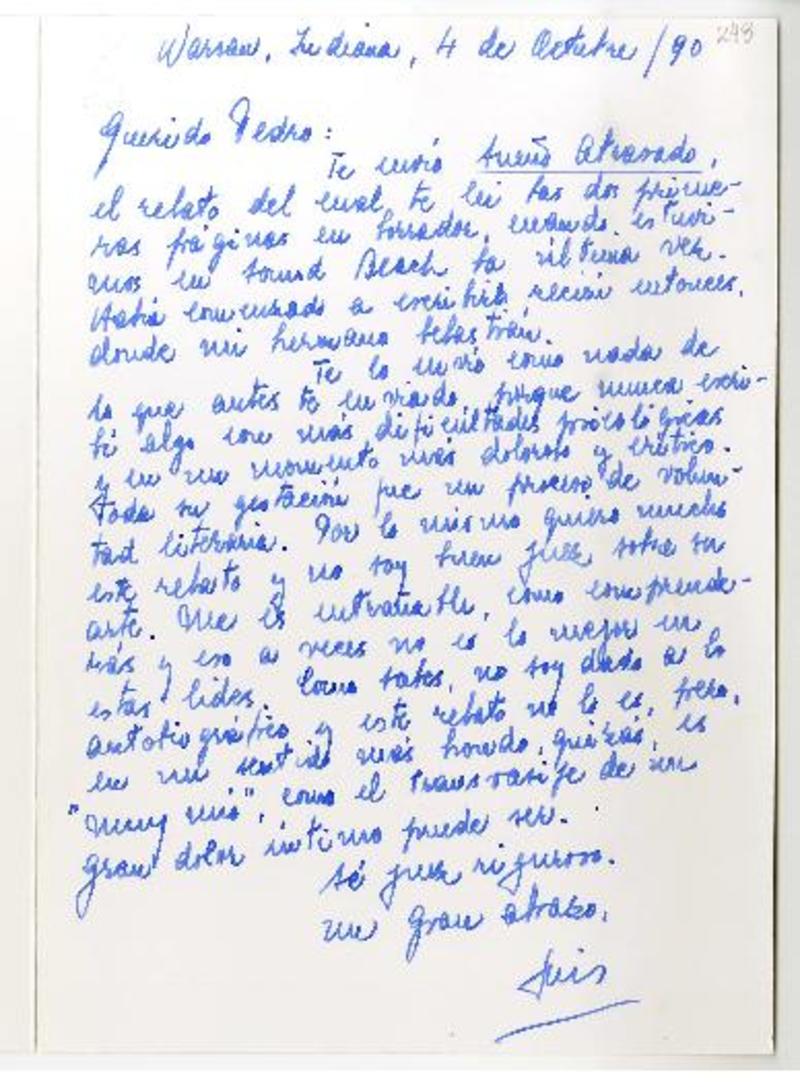 Warsaw, Indiana, 4 de Octubre/90
248
Querido Pedro:
Te envío Sueño Atrasado,
el relato del cual te leí las dos prime-
ras páginas en borrador, cuando estuvi-
mos en Sound Beach la última vez.
Había comenzado a escribirlo recién entonces,
donde mi hermano Sebastián.
Te lo envío como nada de
lo que antes te enviado, porque nunca escri-
bí algo con más dificultades psicológicas
y en un momento más doloroso y crítico.
Toda su gestación fue un proceso de volun-
tad literaria. Por lo mismo quiero mucho
este relato y no soy buen juez sobre su
arte. Me es entrañable, como comprende-
rás y eso a veces no es lo mejor en
estas lides. Como sabes, no soy dado a lo
autobiográfico y este relato no lo es, pero,
en un sentido más hondo, quizás, es
"muy mío", como el transvasije de un
gran dolor íntimo puede ser.
Sé juez riguroso.
Un gran abrazo,
Luis